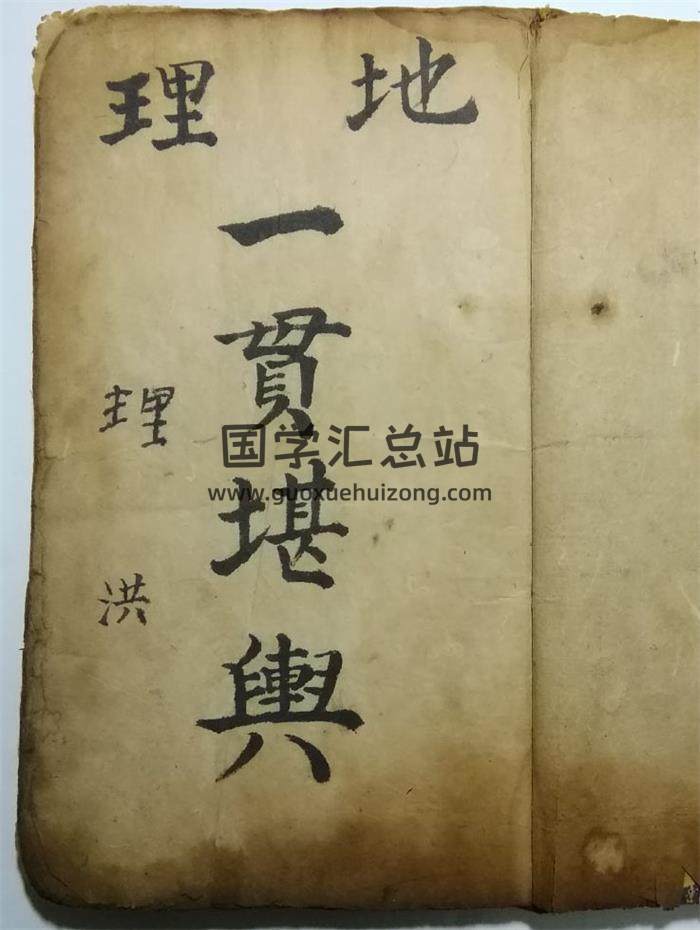 地理
一貫堪輿
理洪
国学汇总站
www.guoxuehuizong.com